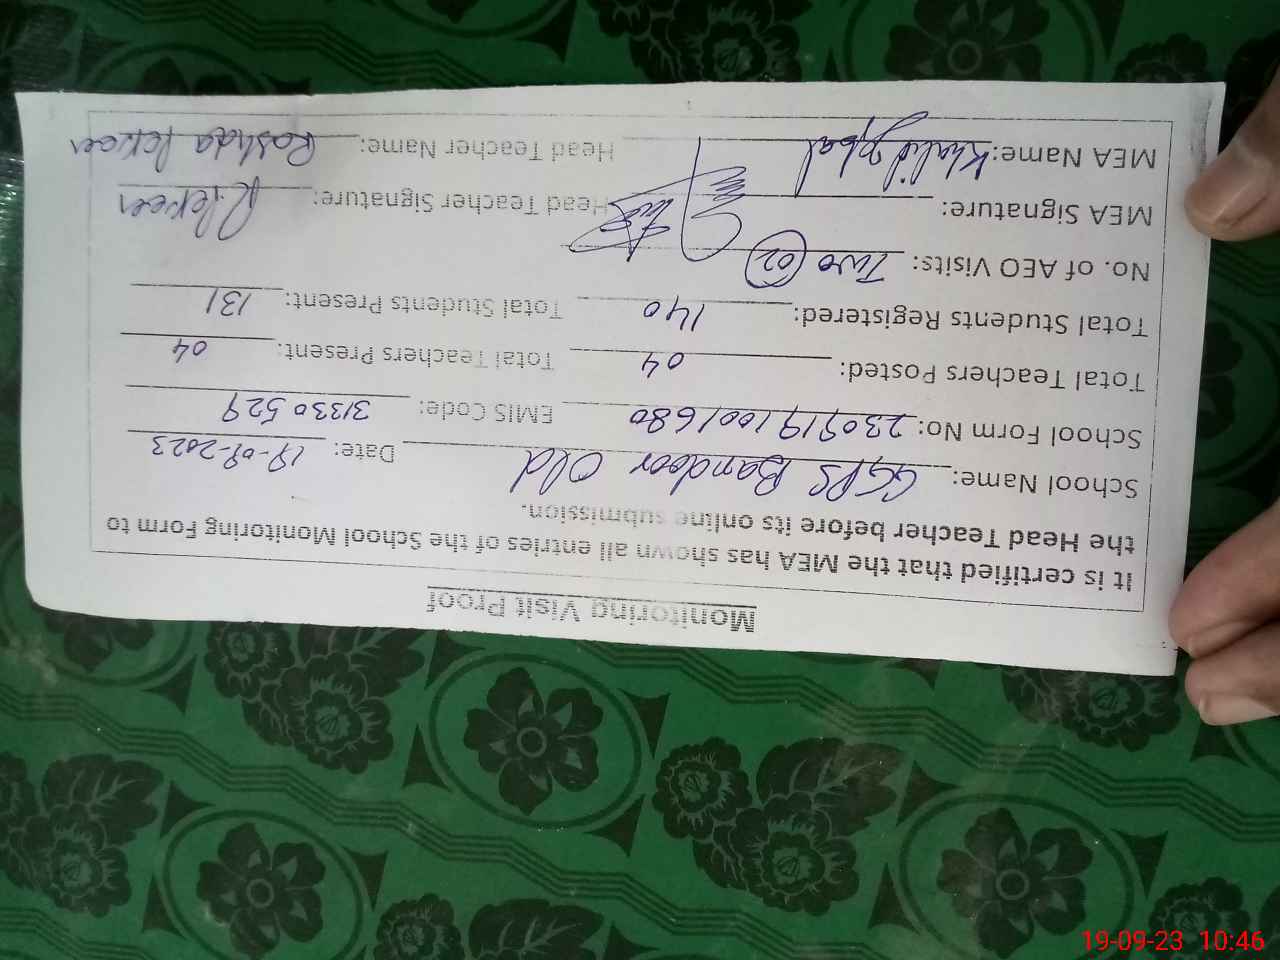 Monitoring Visit Proof
It is certified that the MEA has shown all entries of the School Monitoring Form to
the Head Teacher before its online submission.
School Name: GGPS Bandoor Old Date: 19-09-2023
School Form No: 2309191001680 EMIS Code: 31330529
Total Teachers Posted: 04 Total Teachers Present: 04
Total Students Registered: 140 Total Students Present: 131
No. of AEO Visits: Two 02
MEA Signature: Head Teacher Signature:
MEA Name: Khalid Iqbal Head Teacher Name: Rashida
19-09-23 10:46